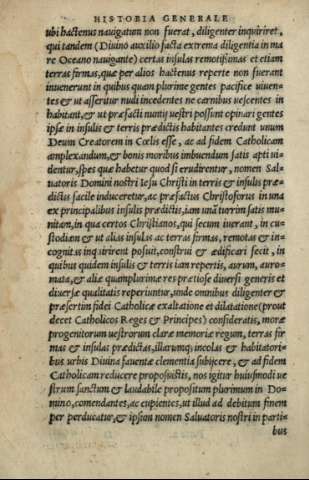 HISTORIA GENERALE
ubi hactenus navigatum non fuerat, diligenter inquiriret,
qui tandem (Divino auxilio facta extrema diligentia in ma
re Oceano navigante) certas insulas remotissimas et etiam
terras firmas, quæ per alios hactenus reperte non fuerant
invenerunt in quibus quam plurime gentes pacifice viuen=
tes & ut asseritur nudi incedentes ne carnibus vescentes in
habitant, & ut præfacti nuntij vestri possunt opinari gentes
ipsæ in insulis & terris prædictis habitantes credunt unum
Deum Creatorem in Cœlis esse, ac ad fidem Catholicam
amplexandum, & bonis moribus imbuendum satis apti vi=
dentur, spes quæ habetur quod si erudirentur, nomen Sal=
uatoris Domini nostri Iesu Christi in terris & insulis præ=
dictis facile induceretur, ac præfactus Christoforus in una
ex principalibus insulis prædictis, iam unā turrim satis mu=
nitam, in qua certos Christianos, qui secum iuerant, in cu=
stodiam & ut alias insulas ac terras firmas, remotas & in=
cognitas inquirirent posuit, construi & ædificari fecit, in
quibus quidem insulis & terris iam repertis, aurum, auro=
mata, & aliæ quamplurimæ res prætiose diuersi generis et
diuersæ qualitatis reperiuntur, unde omnibus diligenter &
præsertim fidei Catholicæ exaltatione et dilatatione (prout
decet Catholicos Reges & Principes) consideratis, moræ
progenitorum uestrorum claræ memoriæ regum, terras fir
mas & insulas prædictas, illarumq; incolas & habitatori=
bus urbis Diuina fauente clementia subijcere, & ad fidem
Catholicam reducere proposuistis, nos igitur huiusmodi ue
strum sanctum & laudabile propositum plurimum in Do=
mino, comendantes, ac cupientes, ut illud ad debitum finem
per perducatur, & ipsum nomen Saluatoris nostri in parti=
bus